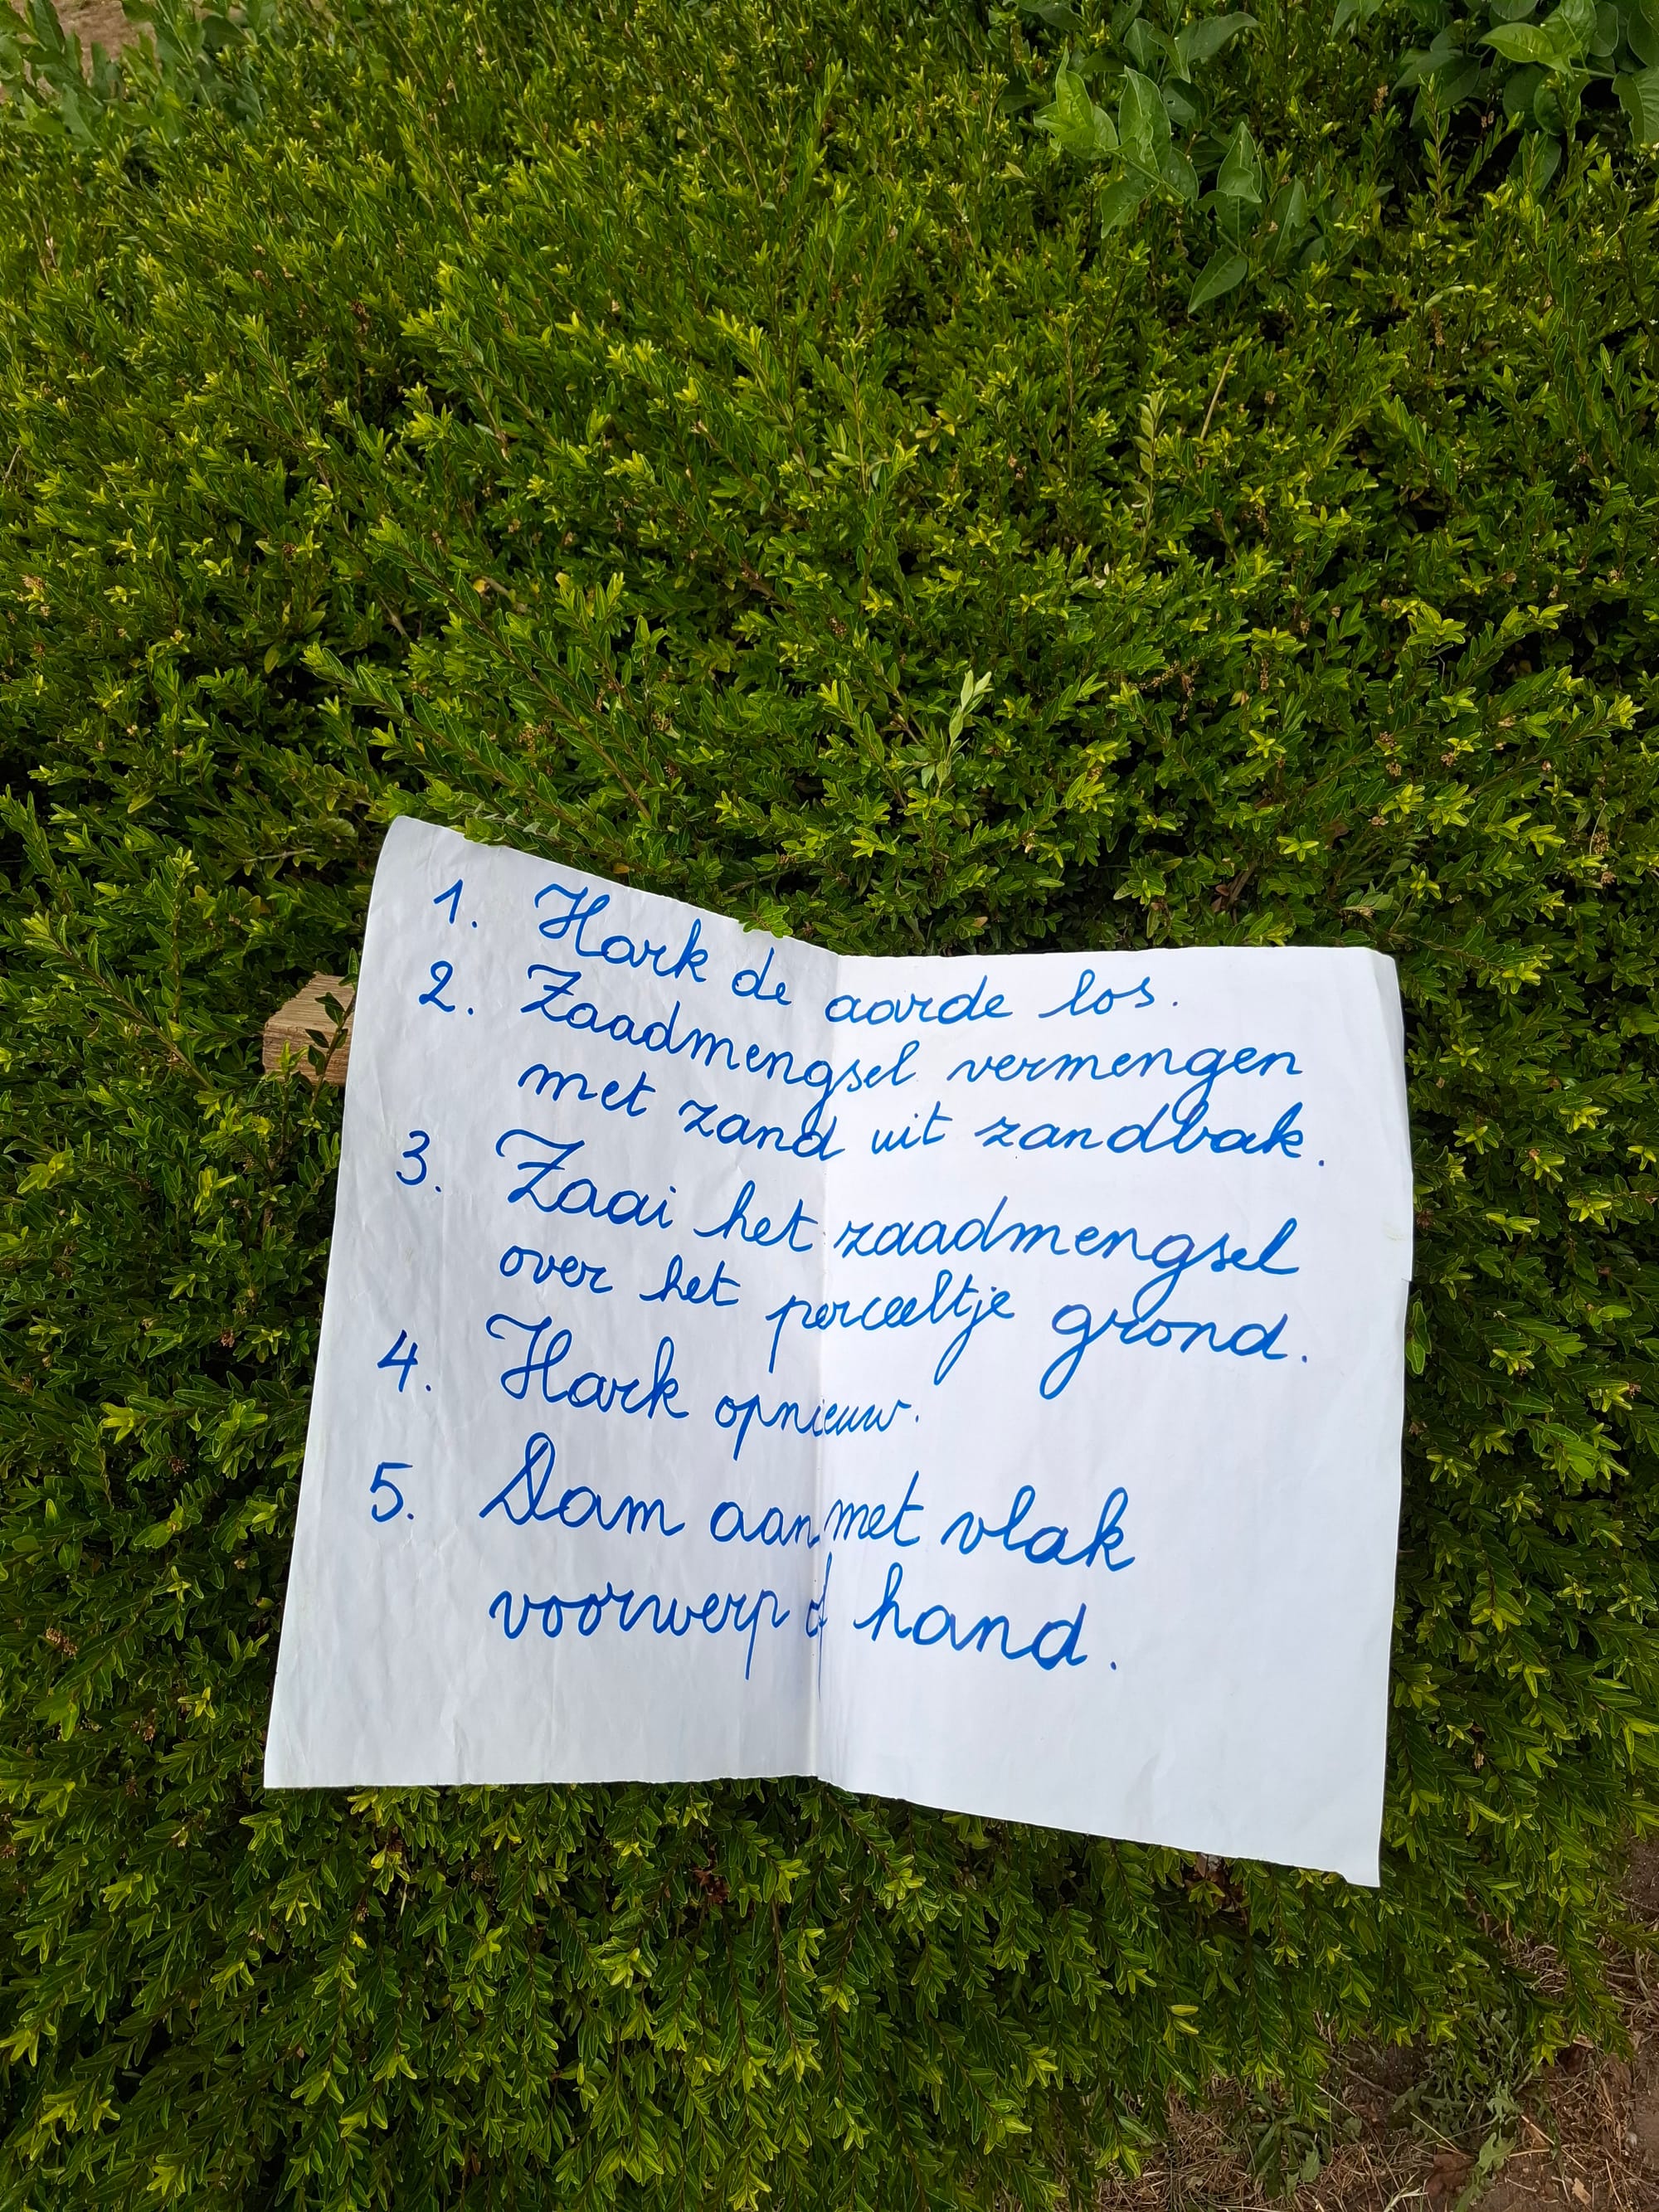 1. Hark de aarde los.
2. Zaadmengsel vermengen
met zand uit zandbak.
3. Zaai het zaadmengsel
over het perceeltje grond.
4. Hark opnieuw.
5. Dam aan met vlak
voorwerp of hand.